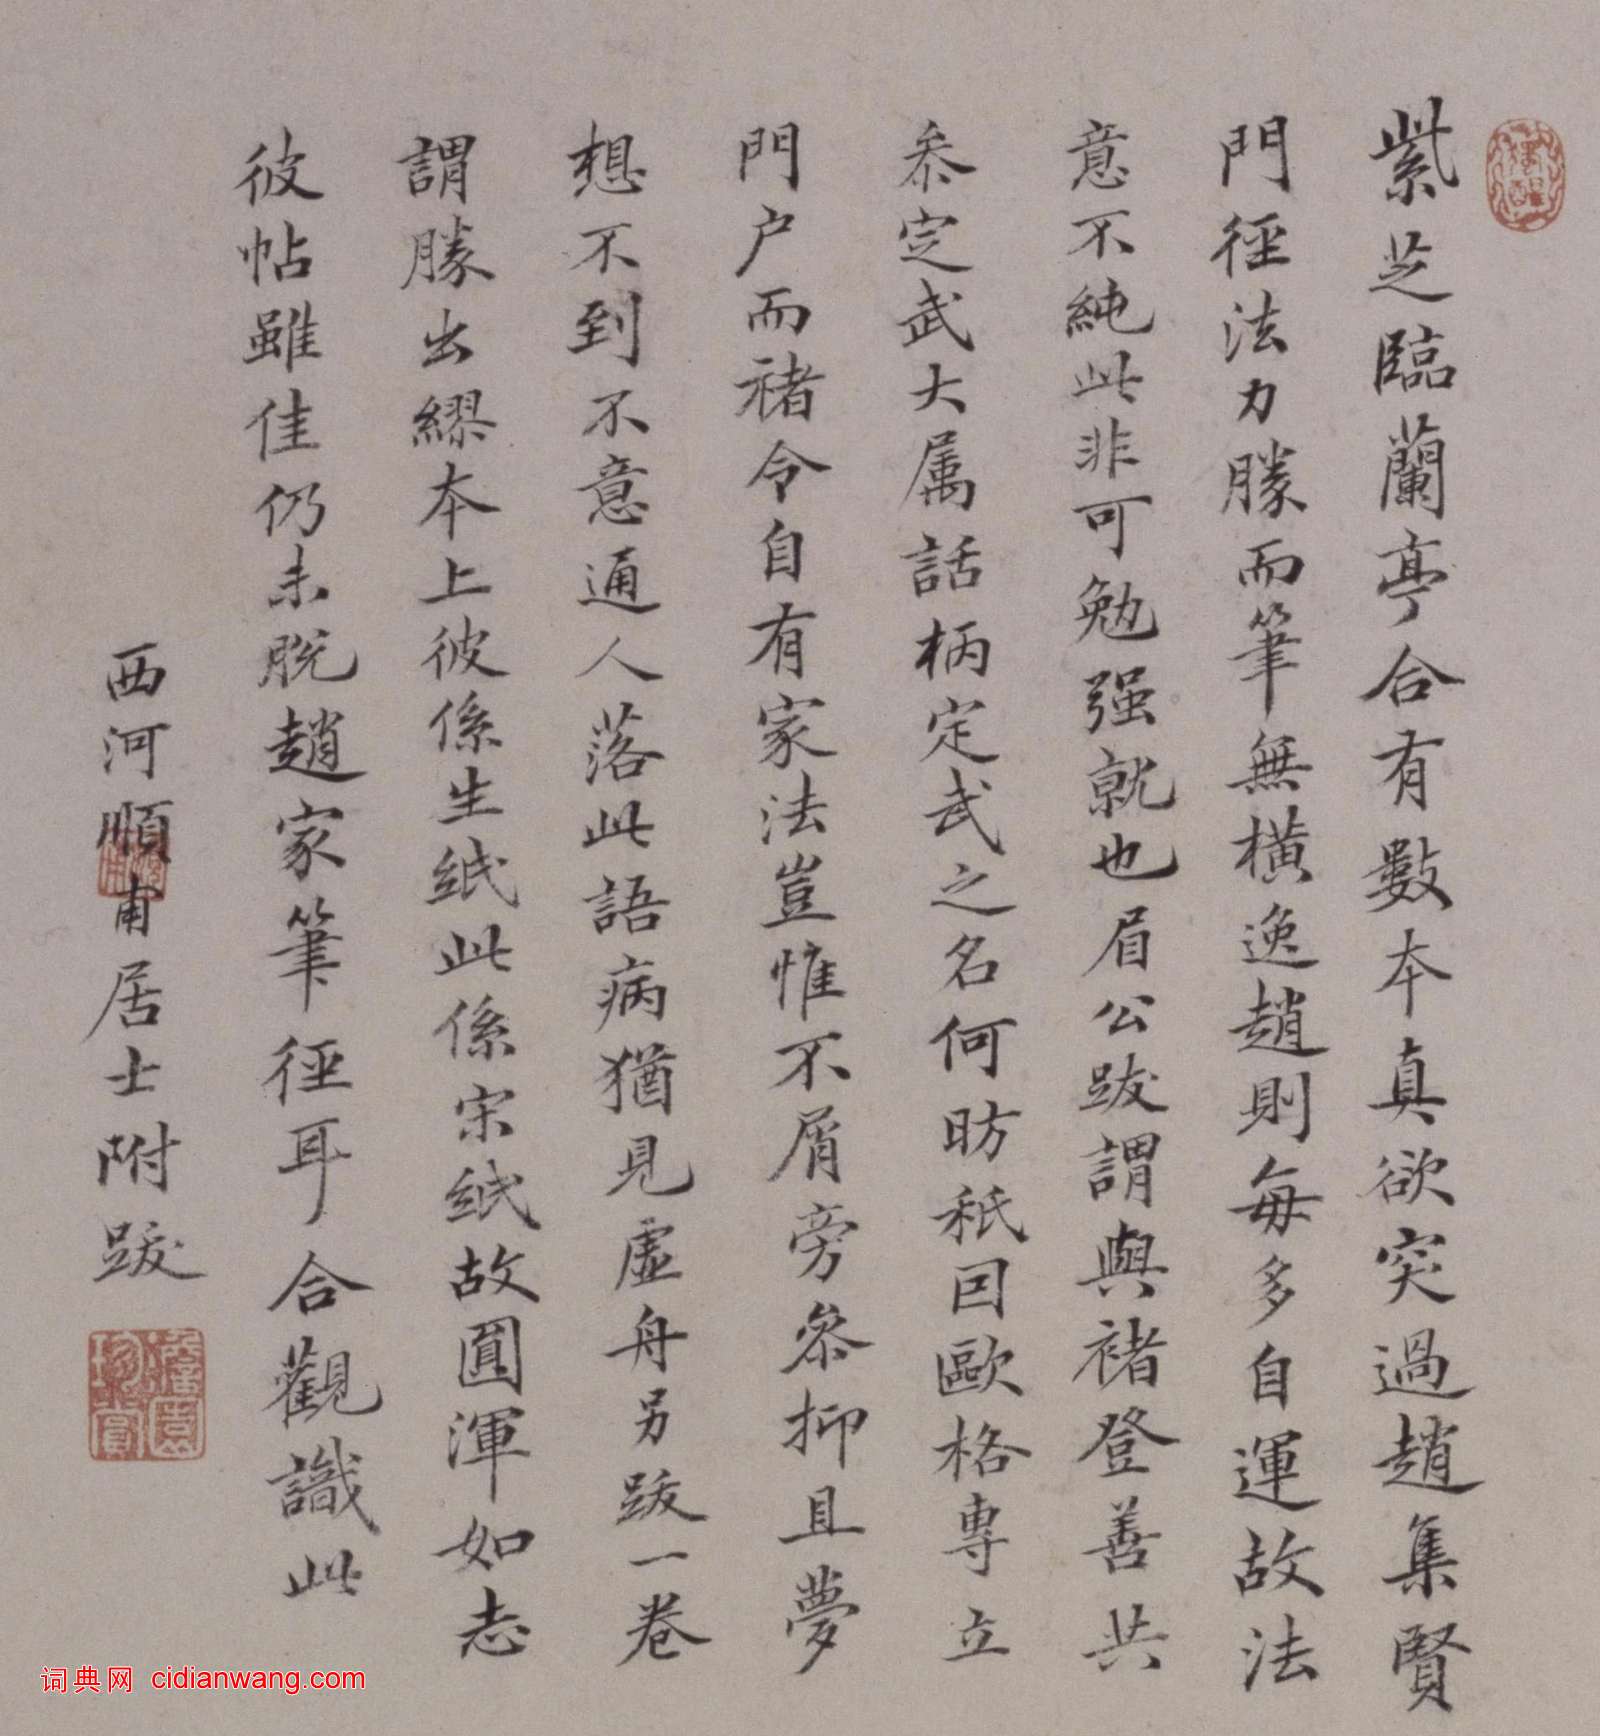 紫芝臨蘭亭合有數本真欲突過趙集賢
門徑法力勝而筆無橫逸趙則每多自運故法
意不純此非可勉强就也眉公跋謂與褚登善共
叅定武大属話柄定武之名何昉秖因歐格專立
門户而褚令自有家法豈惟不屑旁叅抑且夢
想不到不意通人落此語病猶見虛舟另跋一卷
謂勝出繆本上彼係生紙此係宋紙故圓渾如志
彼帖雖佳仍未脱趙家筆徑耳合觀識此
西河順甫居士附跋
词典网 cidianwang.com